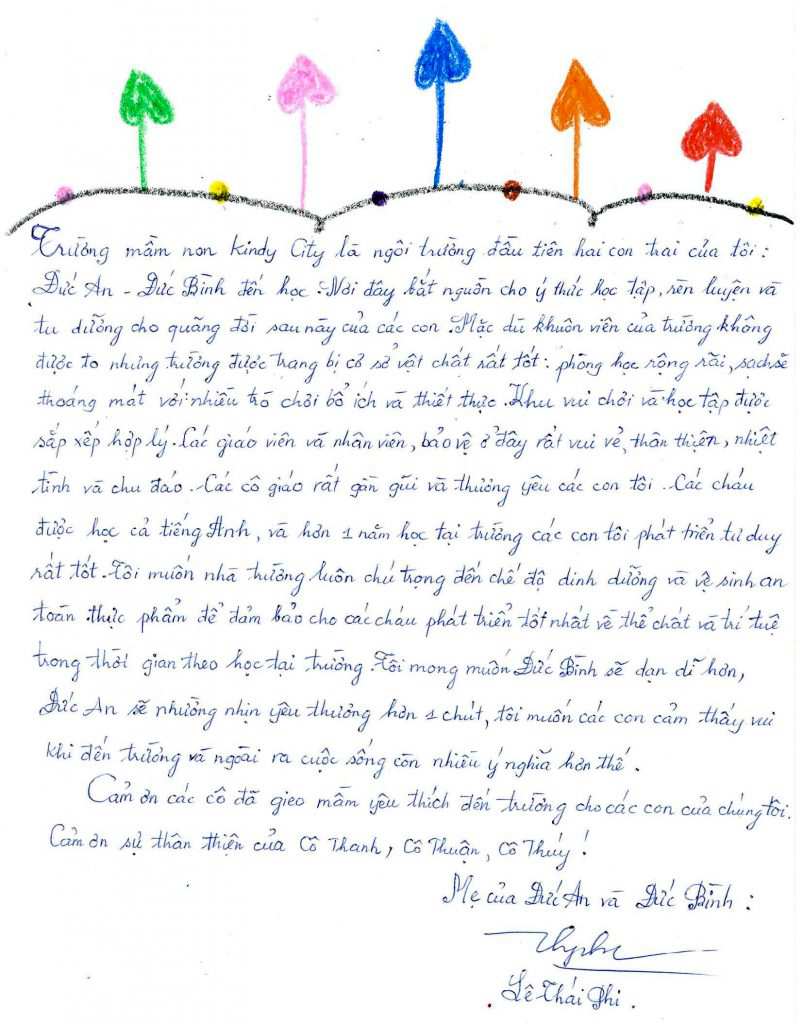 Trường mầm non Kindy City là ngôi trường đầu tiên hai con trai của tôi :
Đức An - Đức Bình đến học. Nơi đây bắt nguồn cho ý thức học tập, rèn luyện và
tu dưỡng cho quãng đời sau này của các con. Mặc dù khuôn viên của trường không
được to nhưng trường được trang bị cơ sở vật chất rất tốt : phòng học rộng rãi, sạch sẽ
thoáng mát với nhiều trò chơi bổ ích và thiết thực. Khu vui chơi và học tập được
sắp xếp hợp lý. Các giáo viên và nhân viên, bảo vệ ở đây rất vui vẻ, thân thiện, nhiệt
tình và chu đáo. Các cô giáo rất gần gũi và thương yêu các con tôi. Các cháu
được học cả tiếng Anh, và hơn 1 năm học tại trường các con tôi phát triển tư duy
rất tốt. Tôi muốn nhà trường luôn chú trọng đến chế độ dinh dưỡng và vệ sinh an
toàn thực phẩm để đảm bảo cho các cháu phát triển tốt nhất về thể chất và trí tuệ
trong thời gian theo học tại trường. Tôi mong muốn Đức Bình sẽ dạn dĩ hơn,
Đức An sẽ nhường nhịn yêu thương hơn 1 chút, tôi muốn các con cảm thấy vui
khi đến trường và ngoài ra cuộc sống còn nhiều ý nghĩa hơn thế.
Cảm ơn các cô đã gieo mầm yêu thích đến trường cho các con của chúng tôi.
Cảm ơn sự thân thiện của Cô Thanh, Cô Thuận, Cô Thúy !
Mẹ của Đức An và Đức Bình :
Lê Thái Phi.